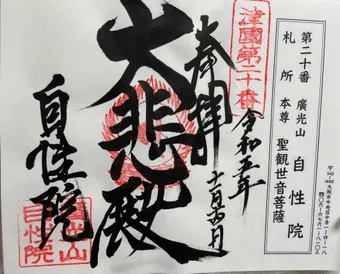 第二十番 廣光山 自性院
札所 本尊 聖観世音菩薩
津國第二十番
奉拝
令和五年
十一月六日
大悲殿
自性院
廣光山
自性院